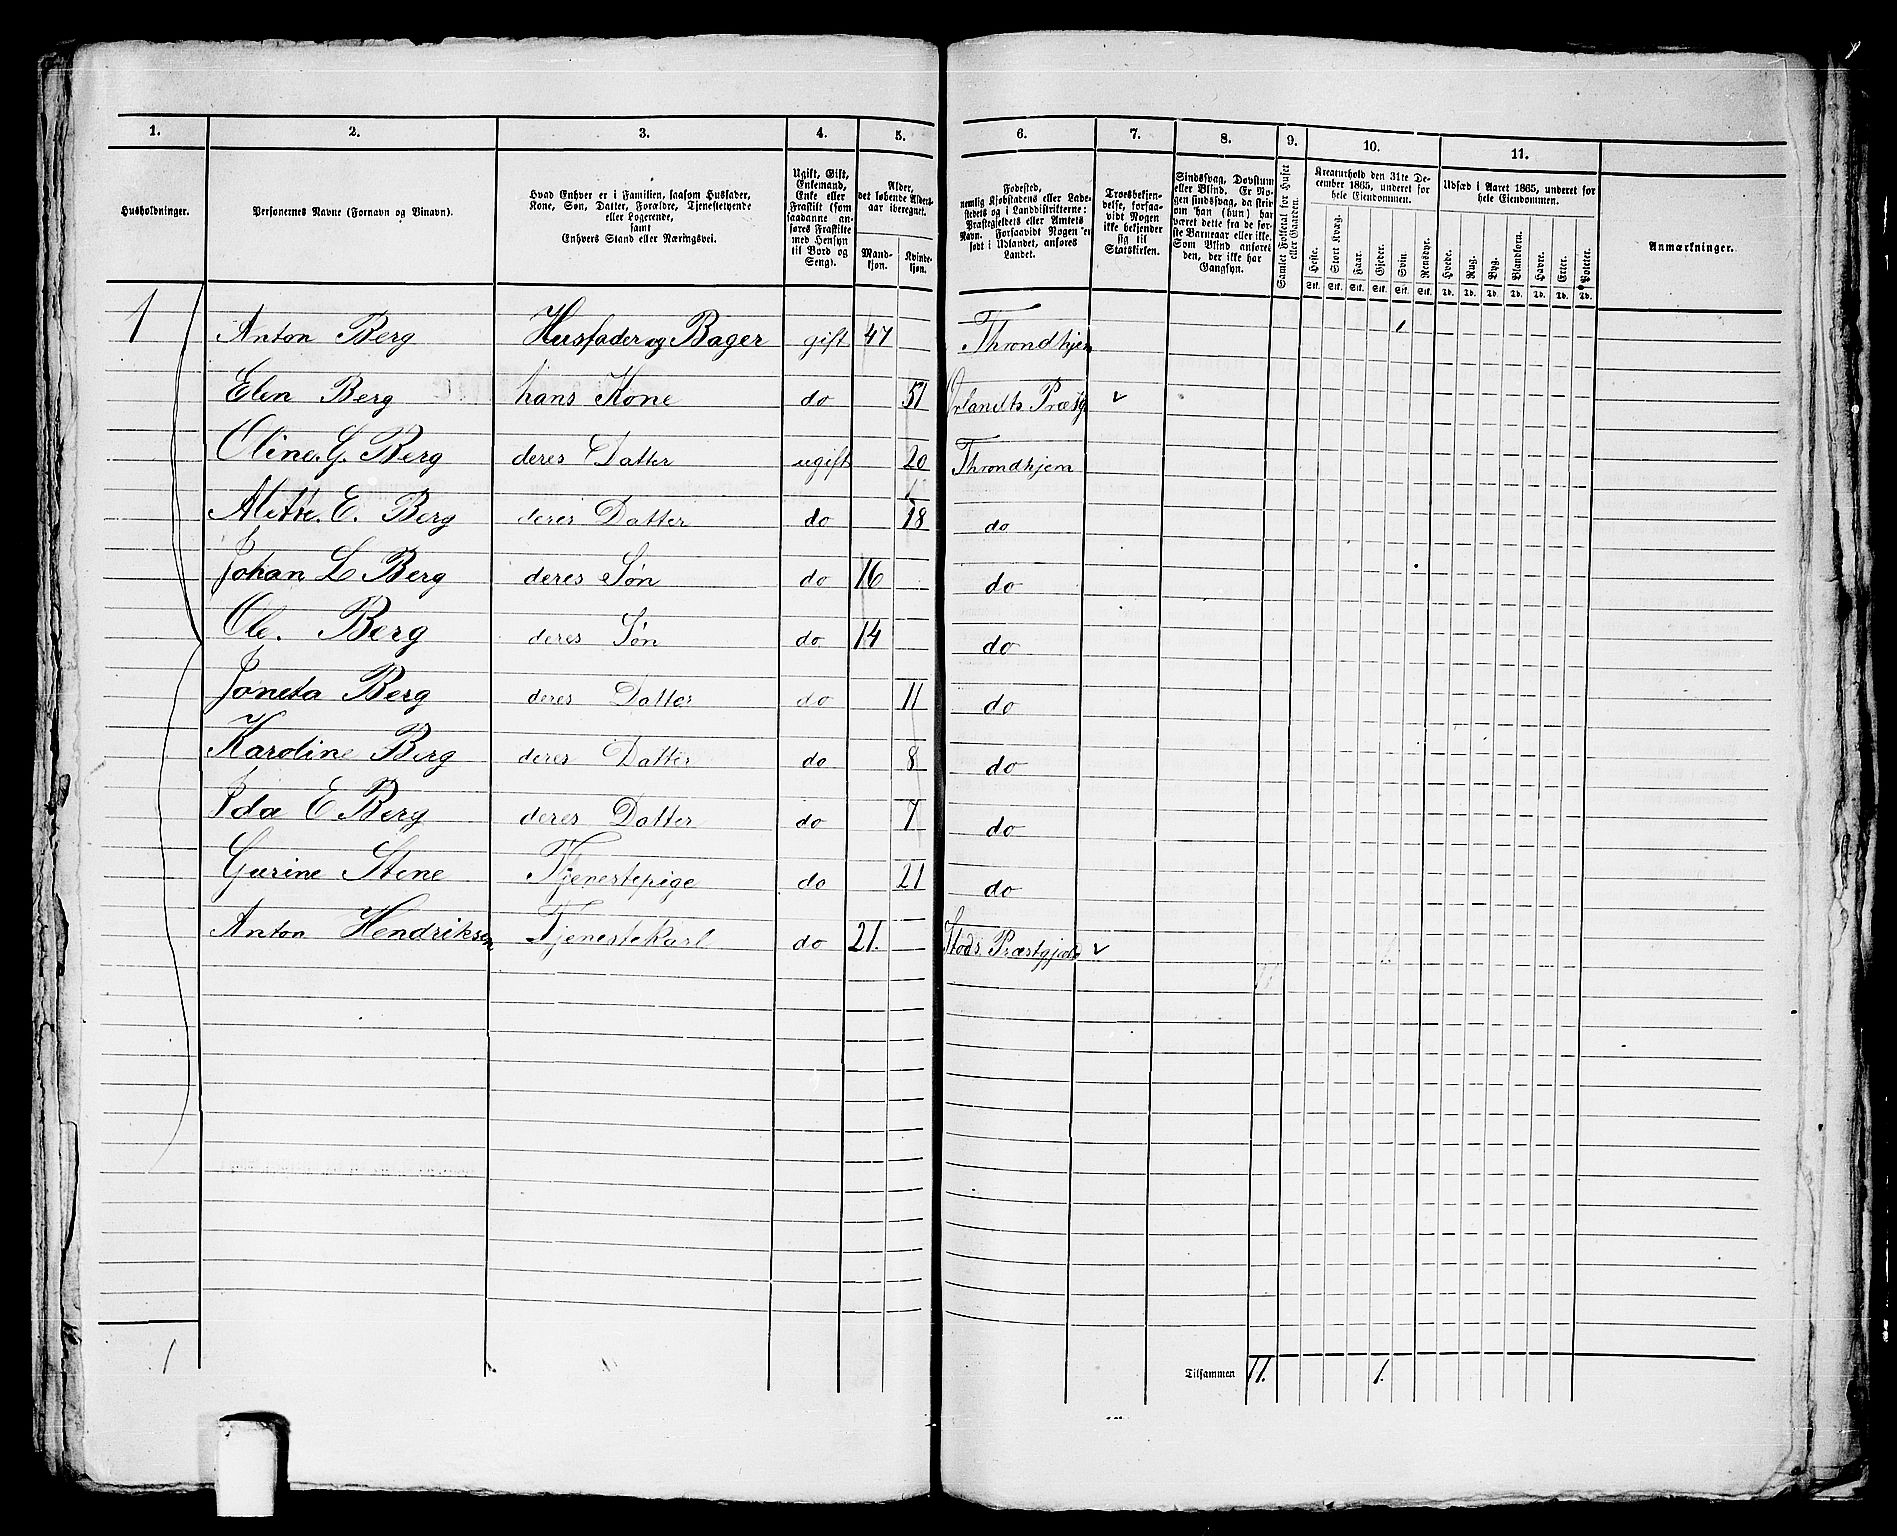 1. 2. 3. 4. 5. 6. 7. 8. 9. 10. 11.
Husholdninger.
Personernes Navne (Fornavn og Tilnavn).
Hvad Enhver er i Familien, saasom Husfader,
Kone, Søn, Datter, Forældre, Tjenestetyende
eller Logerende,
samt
Enhvers Stand eller Næringsvei.
Ugift, Gift,
Enkemand,
Enke eller
Fraskilt (som
saadanne an-
føres Fraskilte
med Hensyn
til Bord og
Seng).
Alder,
det løbende Alders-
aar iberegnet.
Mand-
kjøn.
Kvinde-
kjøn.
Fødested,
nemlig Kjøbstadens eller Lade-
stedets og i Landdistrikterne:
Præstegjeldets eller Amtets
Navn. Forsaavidt Nogen er
født i Udlandet, anføres
Landet.
Troesbekjen-
delse, forsaa-
vidt Nogen
ikke bekjender
sig til
Statskirken.
Sindssvag, Døvstum
eller Blind. Er No-
gen sindssvag, da skriv
om han (hun) har
været dette fra de før-
ste Barneaar eller ikke.
Som Blind anføres
den, der ikke har
Gangsyn.
Samlet Folketal for Huset
eller Gaarden.
Kreaturhold den 31te De-
cember 1865, underet for
hele Eiendommen.
Heste. Stort Kvæg. Faar. Gjeder. Svin. Rensdyr.
Stk. Stk. Stk. Stk. Stk. Stk.
Udsæd i Aaret 1865, underet for
hele Eiendommen.
Hvede. Rug. Byg. Blandkorn. Havre. Erter. Poteter.
Td. Td. Td. Td. Td. Td. Td.
Anmærkninger.
1 Anton Berg Husfader og Bager gift 47 Throndhjem 1
Elen Berg hans Kone do 51 Ørlandts Præstg
Oline. G. Berg deres Datter ugift 20 Throndhjem
Mette. E. Berg deres Datter do 18 do
Johan L Berg deres Søn do 16 do
Ole. Berg deres Søn do 14 do
Joneta Berg deres Datter do 11 do
Karoline Berg deres Datter do 8 do
Ida E Berg deres Datter do 7 do
Gurine Stene Tjenestepige do 21 do
Anton Hendriksen Tjenestekarl do 21. Stods Præstgjeld
11
1 Tilsammen 11. 1.